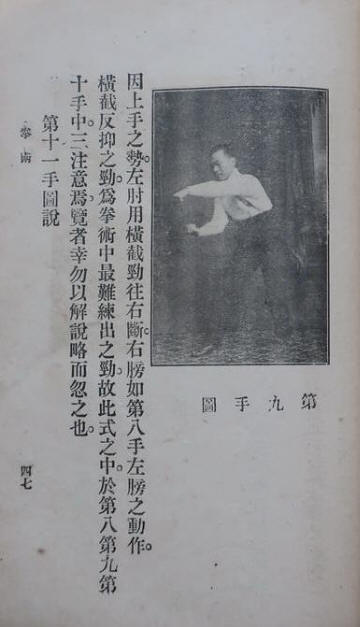 第九手圖
因上手之勢。左肘用橫截勁往右斷。右膀如第八手左膀之動作。
橫截反抑之勁。爲拳術中最難練出之勁。故此式之中。於第八第九第
十手中。三注意焉。覽者幸勿以解說略而忽之也。
第十一手圖說
拳術
四七